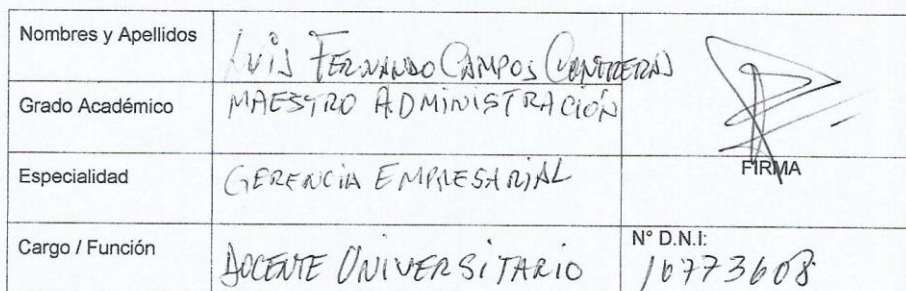 Nombres y Apellidos
Luis FERNANDO CAMPOS CONTRERAS
Grado Académico
MAESTRO ADMINISTRACIÓN
Especialidad
GERENCIA EMPRESARIAL
FIRMA
Cargo / Función
DOCENTE UNIVERSITARIO
N° D.N.I:
16773608